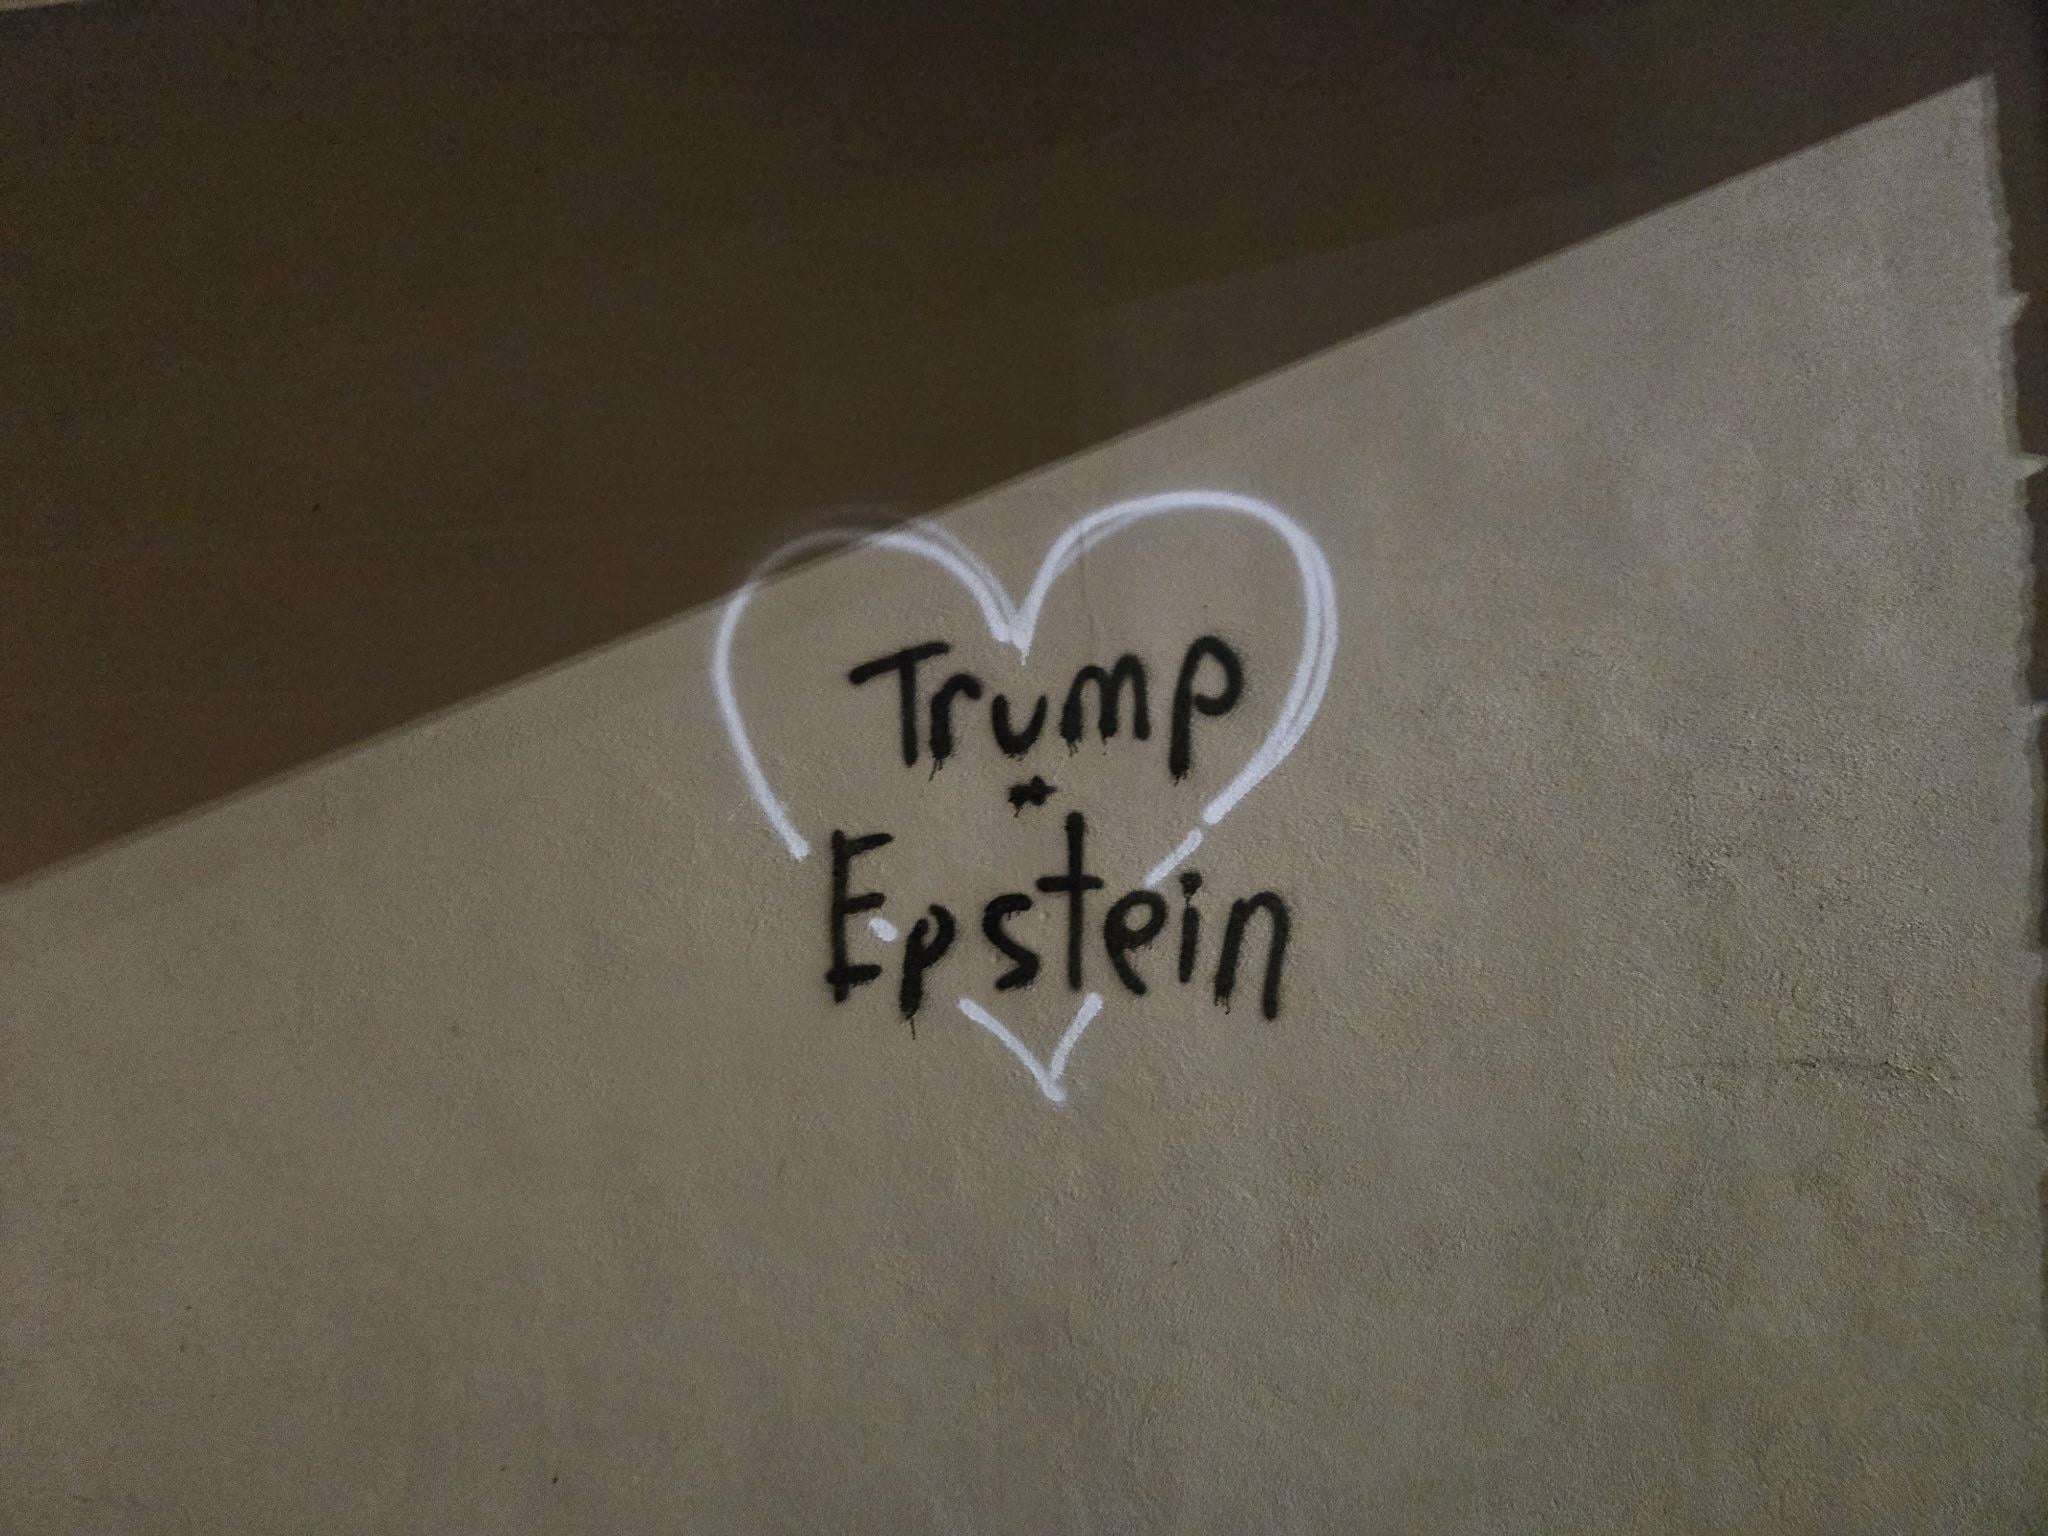 Trump
+
Epstein